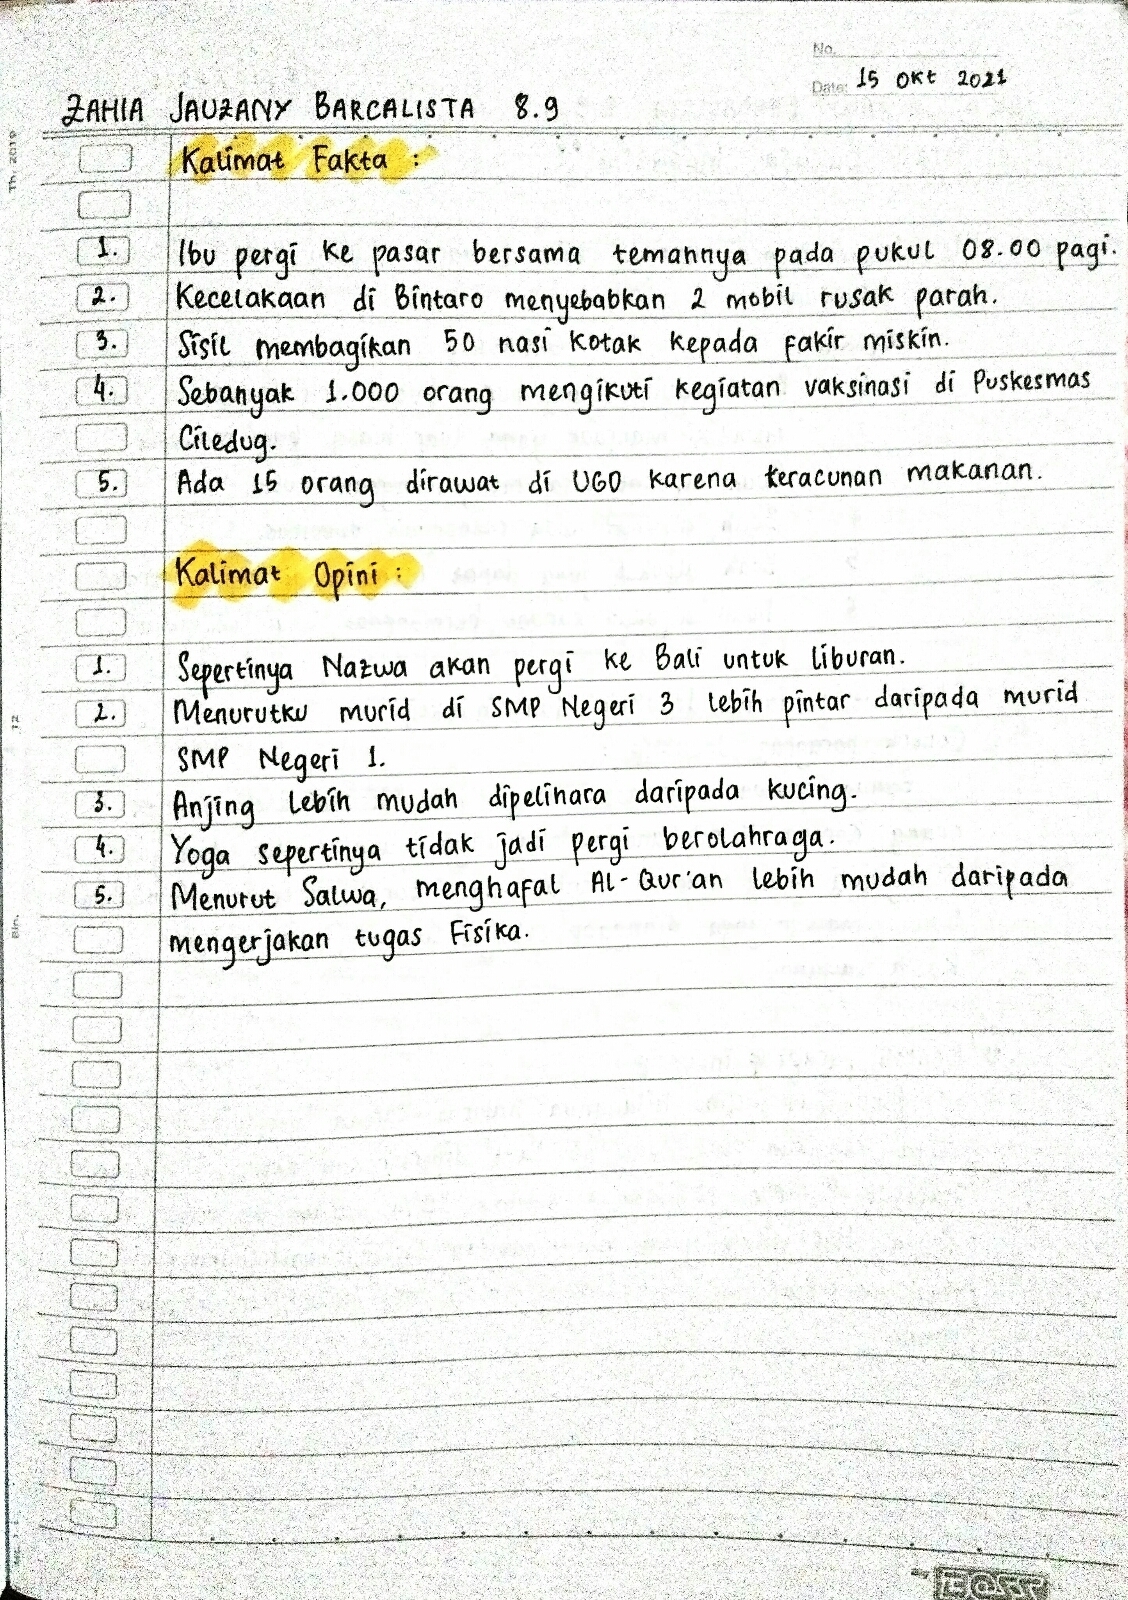 No.
Date: 15 Okt 2021
ZAHIA JAUZANY BARCALISTA 8.9
Kalimat Fakta :
1. Ibu pergi ke pasar bersama temannya pada pukul 08.00 pagi.
2. Kecelakaan di Bintaro menyebabkan 2 mobil rusak parah.
3. Sisil membagikan 50 nasi kotak kepada fakir miskin.
4. Sebanyak 1.000 orang mengikuti kegiatan vaksinasi di Puskesmas
Ciledug.
5. Ada 15 orang dirawat di UGD karena keracunan makanan.
Kalimat Opini :
1. Sepertinya Nazwa akan pergi ke Bali untuk liburan.
2. Menurutku murid di SMP Negeri 3 lebih pintar daripada murid
SMP Negeri 1.
3. Anjing lebih mudah dipelihara daripada kucing.
4. Yoga sepertinya tidak jadi pergi berolahraga.
5. Menurut Salwa, menghafal Al-Qur'an lebih mudah daripada
mengerjakan tugas Fisika.